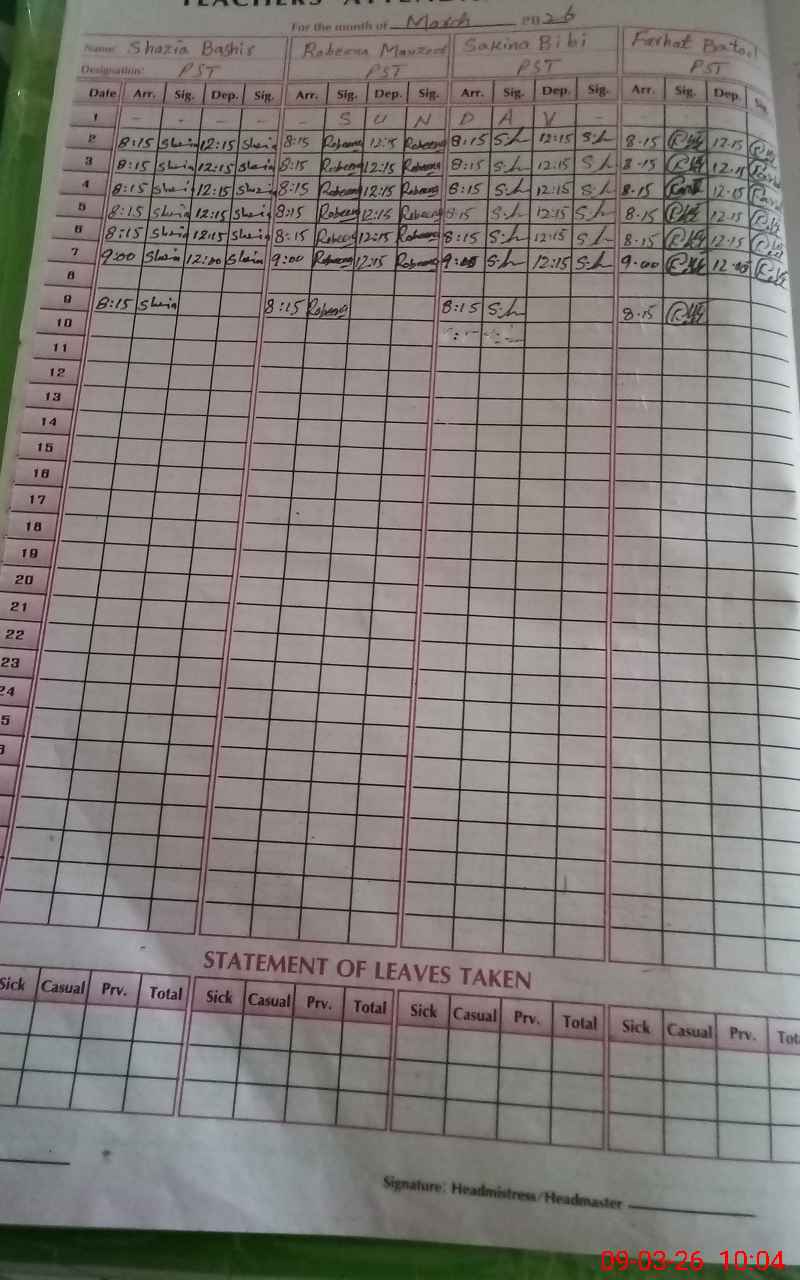 TEACHERS' ATTENDA
For the month of March 2026
Name: Shazia Bashir Robeena Manzoor Sakina Bibi Farhat Batool
Designation: PST PST PST PST
Date Arr. Sig. Dep. Sig. Arr. Sig. Dep. Sig. Arr. Sig. Dep. Sig. Arr. Sig. Dep. Sig.
1 - - - - - S U N D A Y - -
2 8:15 12:15 8:15 Robeena 12:15 Robeena 8:15 S.h 12:15 S.h 8.15 12.15
3 8:15 12:15 8:15 Robeena 12:15 Robeena 8:15 S.h 12:15 S.h 8.15 12.15
4 8:15 12:15 8:15 Robeena 12:15 Robeena 8:15 S.h 12:15 S.h 8.15 12.15
5 8:15 12:15 8:15 Robeena 12:15 Robeena 8:15 S.h 12:15 S.h 8.15 12.15
6 8:15 12:15 8:15 Robeena 12:15 Robeena 8:15 S.h 12:15 S.h 8.15 12.15
7 9:00 12:00 9:00 Robeena 12:15 Robeena 9:00 S.h 12:15 S.h 9.00
8
9 8:15 8:15 Robeena 8:15 S.h 8.15
10
11
12
13
14
15
16
17
18
19
20
21
22
23
24
5
STATEMENT OF LEAVES TAKEN
Sick Casual Prv. Total Sick Casual Prv. Total Sick Casual Prv. Total Sick Casual Prv. Tot
Signature: Headmistress/Headmaster
09-03-26 10:04